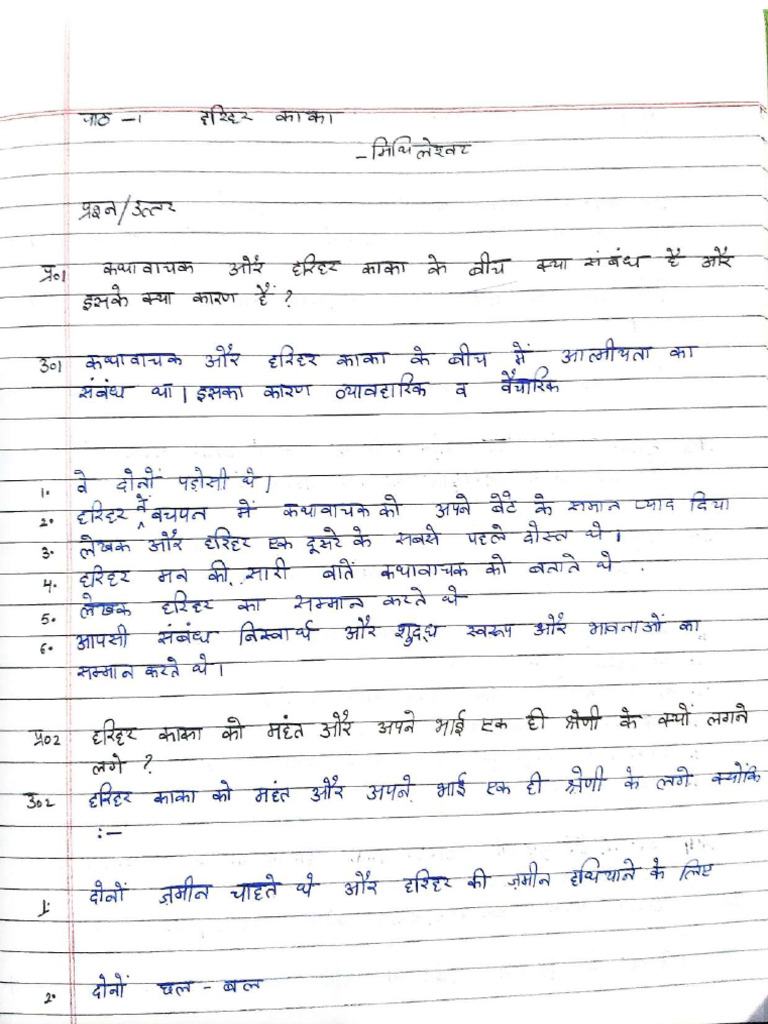 पाठ -1 हरिहर काका
- मिथिलेश्वर
प्रश्न/उत्तर
प्र०1 कथावाचक और हरिहर काका के बीच क्या संबंध है और
इसके क्या कारण हैं ?
उ०1 कथावाचक और हरिहर काका के बीच में आत्मीयता का
संबंध था। इसका कारण व्यावहारिक व वैचारिक
1. वे दोनों पड़ोसी थे।
2. हरिहर ने बचपन में कथावाचक को अपने बेटे के समान प्याद दिया
3. लेखक और हरिहर एक दूसरे के सबसे पहले दोस्त थे।
4. हरिहर मन की सारी बातें कथावाचक को बताते थे .
5. लेखक हरिहर का सम्मान करते थे
6. आपसी संबंध निस्वार्थ और शुद्ध स्वरूप और भावनाओं का
सम्मान करते थे।
प्र०2 हरिहर काका को महंत और अपने भाई एक ही श्रेणी के क्यों लगने
लगे ?
उ०2 हरिहर काका को महंत और अपने भाई एक ही श्रेणी के लगे क्योंकि
:-
1. दोनों ज़मीन चाहते थे और हरिहर की ज़मीन हथियाने के लिए
2. दोनों छल - बल